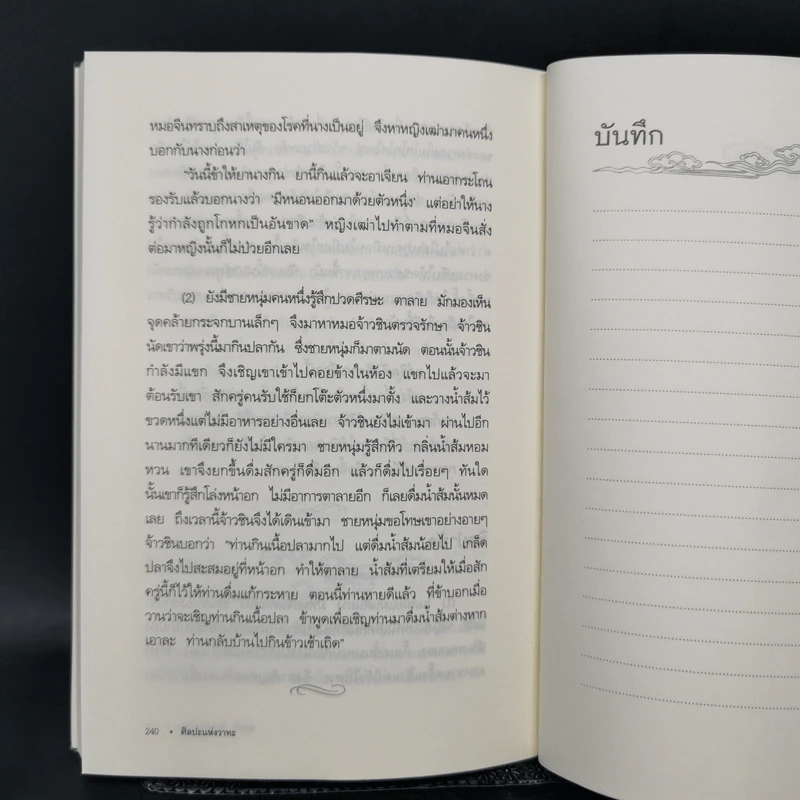 หมอจีนทราบถึงสาเหตุของโรคที่นางเป็นอยู่ จึงหาหญิงเฒ่ามาคนหนึ่ง
บอกกับนางก่อนว่า
“วันนี้ข้าให้ยานางกิน ยานี้กินแล้วจะอาเจียน ท่านเอากระโถน
รองรับแล้วบอกนางว่า ‘มีหนอนออกมาด้วยตัวหนึ่ง’ แต่อย่าให้นาง
รู้ว่ากำลังถูกโกหกเป็นอันขาด” หญิงเฒ่าไปทำตามที่หมอจีนสั่ง
ต่อมาหญิงนั้นก็ไม่ป่วยอีกเลย
(2) ยังมีชายหนุ่มคนหนึ่งรู้สึกปวดศีรษะ ตาลาย มักมองเห็น
จุดคล้ายกระจกบานเล็กๆ จึงมาหาหมอจ้าวชินตรวจรักษา จ้าวชิน
นัดเขาว่าพรุ่งนี้มากินปลากัน ซึ่งชายหนุ่มก็มาตามนัด ตอนนั้นจ้าวชิน
กำลังมีแขก จึงเชิญเขาเข้าไปคอยข้างในห้อง แขกไปแล้วจะมา
ต้อนรับเขา สักครู่คนรับใช้ก็ยกโต๊ะตัวหนึ่งมาตั้ง และวางน้ำส้มไว้
ขวดหนึ่งแต่ไม่มีอาหารอย่างอื่นเลย จ้าวชินยังไม่เข้ามา ผ่านไปอีก
นานมากทีเดียวก็ยังไม่มีใครมา ชายหนุ่มรู้สึกหิว กลิ่นน้ำส้มหอม
หวน เขาจึงยกขึ้นดื่มสักครู่ก็ดื่มอีก แล้วก็ดื่มไปเรื่อยๆ ทันใด
นั้นเขาก็รู้สึกโล่งหน้าอก ไม่มีอาการตาลายอีก ก็เลยดื่มน้ำส้มนั้นหมด
เลย ถึงเวลานี้จ้าวชินจึงได้เดินเข้ามา ชายหนุ่มขอโทษเขาอย่างอายๆ
จ้าวชินบอกว่า “ท่านกินเนื้อปลามากไป แต่ดื่มน้ำส้มน้อยไป เกล็ด
ปลาจึงไปสะสมอยู่ที่หน้าอก ทำให้ตาลาย น้ำส้มที่เตรียมให้เมื่อสัก
ครู่นี้ก็ไว้ให้ท่านดื่มแก้กระหาย ตอนนี้ท่านหายดีแล้ว ที่ข้าบอกเมื่อ
วานว่าจะเชิญท่านกินเนื้อปลา ข้าพูดเพื่อเชิญท่านมาดื่มน้ำส้มต่างหาก
เอาละ ท่านกลับบ้านไปกินข้าวเช้าเถิด”
240 • ศิลปะแห่งวาทะ
บันทึก